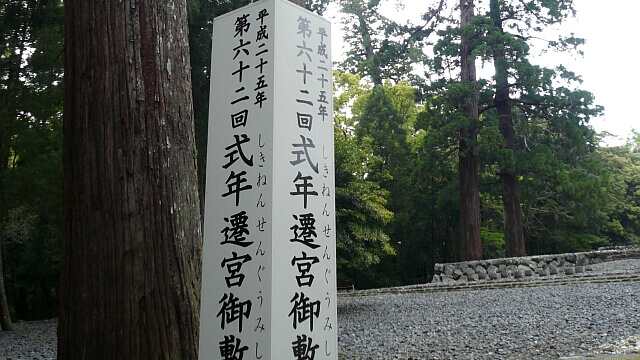 平成二十五年
第六十二回式年遷宮御敷
しきねんせんぐうみし
平成二十五年
第六十二回式年遷宮御敷
しきねんせんぐうみし